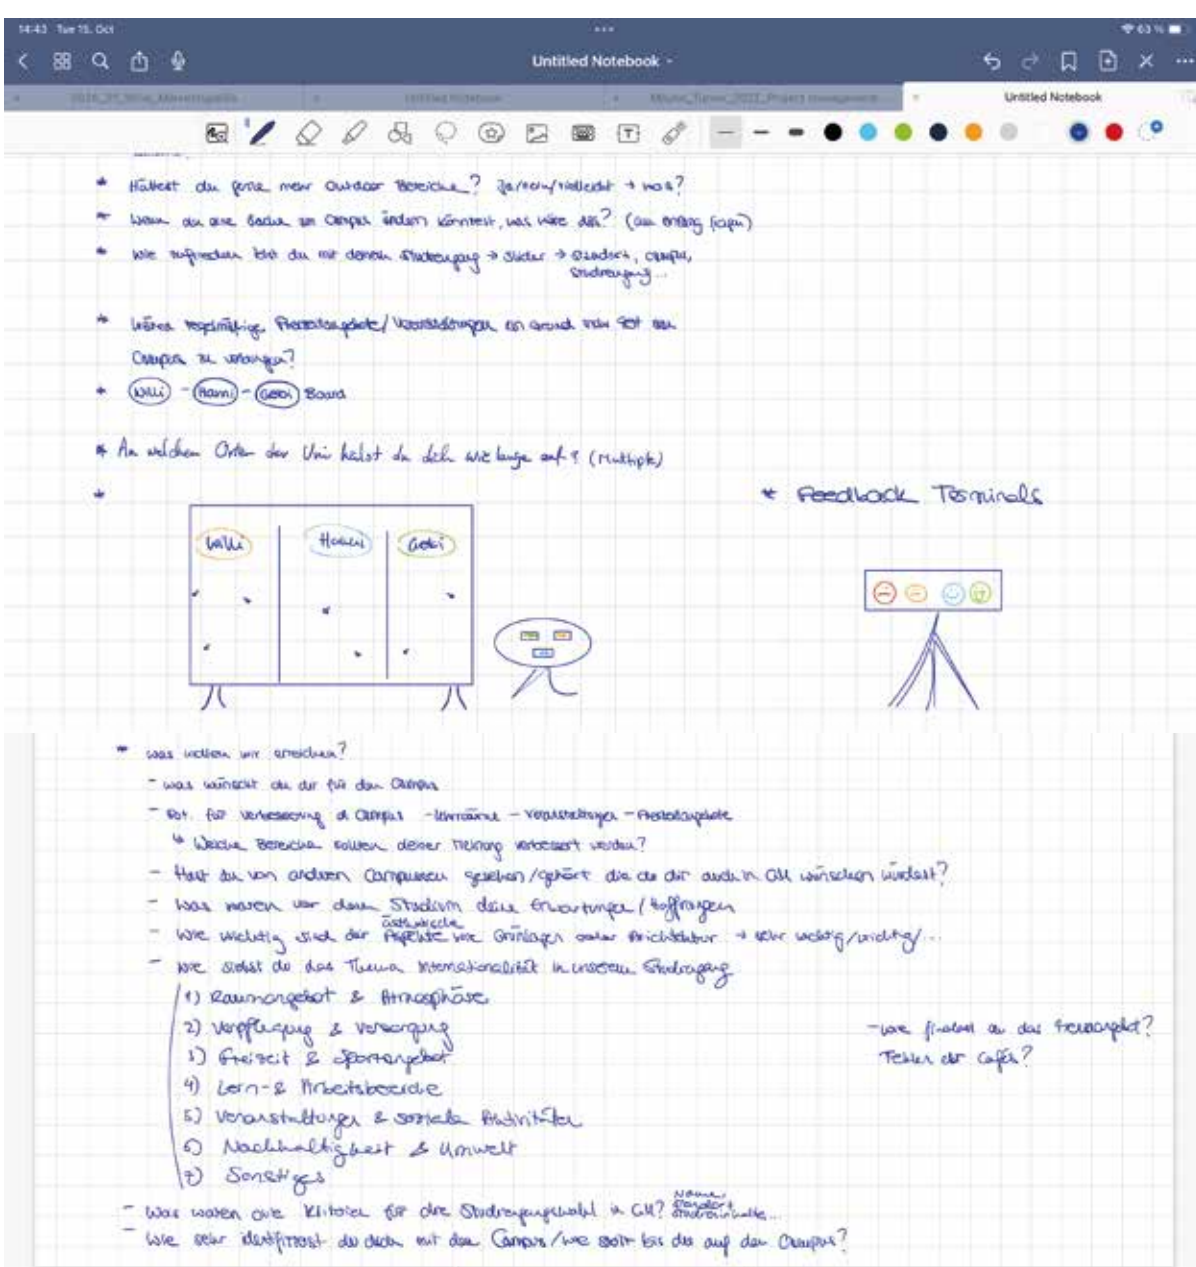 14:43 Tue 15. Oct
63 %
Untitled Notebook
Untitled Notebook
Untitled Notebook
* Hättest du gerne mehr Outdoor Bereiche? Ja/nein/vielleicht → was?
* Wenn du eine Sache am Campus ändern könntest, was wäre das? (am
* Wie zufrieden bist du mit deinem Studiengang → Slider → Standort, Campus,
Studiengang...
* Wären regelmäßige Freizeitangebote/Veranstaltungen ein Grund mehr Zeit am
Campus zu verbringen?
* Willi - Hami - Gobi Board
* An welchen Orten der Uni hälst du dich wie lange auf? (Multiple)
*
* Feedback Terminals
Willi
Hami
Gobi
* was wollen wir erreichen?
- was wünscht du dir für den Campus
- Pot. für Verbesserung d Campus - Lernräume - Veranstaltungen - Freizeitangebote
↳ Welche Bereiche sollten deiner Meinung verbessert werden?
- Hast du von anderen Campussen gesehen/gehört die du dir auch in GM wünschen würdest?
- Was waren vor dem Studium deine Erwartungen/Hoffnungen
- Wie wichtig sind dir ästhetische Aspekte wie Grünlagen oder Architektur → sehr wichtig/wichtig/...
- wie siehst du das Thema Internationalität in unserem Studiengang
1) Raumangebot & Atmosphäre
2) Verpflegung & Versorgung
3) Freizeit & Sportangebot
4) Lern- & Arbeitsbereiche
5) Veranstaltungen & soziale Aktivitäten
6) Nachhaltigkeit & Umwelt
7) Sonstiges
- wie findest du das
Fehlen dir Cafés?
- Was waren die Kriterien für die Studiengangswahl in GM? Name, Standort, Studieninhalte...
- Wie sehr identifizierst du dich mit dem Campus/wie stolz bis du auf den Campus?